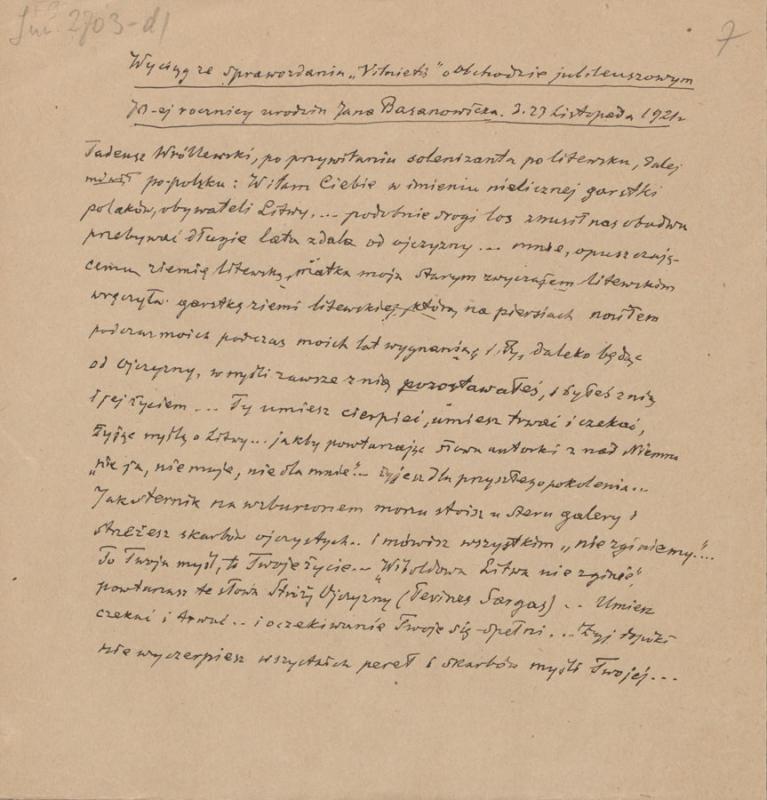 Inw. 2703-d/
7
Wyciąg ze sprawozdania „Vilnietis" o obchodzie jubileuszowym
70-ej rocznicy urodzin Jana Basanowicza. d. 23 Listopada 1921 r
Tadeusz Wróblewski, po przywitaniu solenizanta po litewsku, dalej
mówił po-polsku: Witam Ciebie w imieniu nielicznej garstki
polaków, obywateli Litwy, ... podobnie srogi los zmusił nas obudwu
przebywać długie lata zdala od ojczyzny ... mnie, opuszczają-
cemu ziemię litewską, matka moja starym zwyczajem litewskim
wręczyła garstkę ziemi litewskiej, którą na piersiach nosiłem
podczas moich podczas moich lat wygnania, i Ty, daleko będąc
od ojczyzny, w myśli zawsze z nią pozostawałeś, i byłeś z nią
i jej życiem ... Ty umiesz cierpieć, umiesz trwać i czekać,
żyjąc myślą o Litwy ... jakby powtarzając słowa autorki z nad Niemna
„nie ja, nie moje, nie dla mnie" ... żyjesz dla przyszłego pokolenia ...
Jak sternik na wzburzonem morzu stoisz u steru galery i
strzeżesz skarbów ojczystych .. i mówisz wszystkim „nie zginiemy." ...
To Twoja myśl, to Twoje życie ... „Witoldowa Litwa nie zginie"
powtarzasz te słowa Stróż Ojczyzny (Tevines Sargas) .. Umiesz
czekać i trwać .. i oczekiwanie Twoje się spełni ... Żyj dopóki
nie wyczerpiesz wszystkich pereł i skarbów myśli Twojej ...